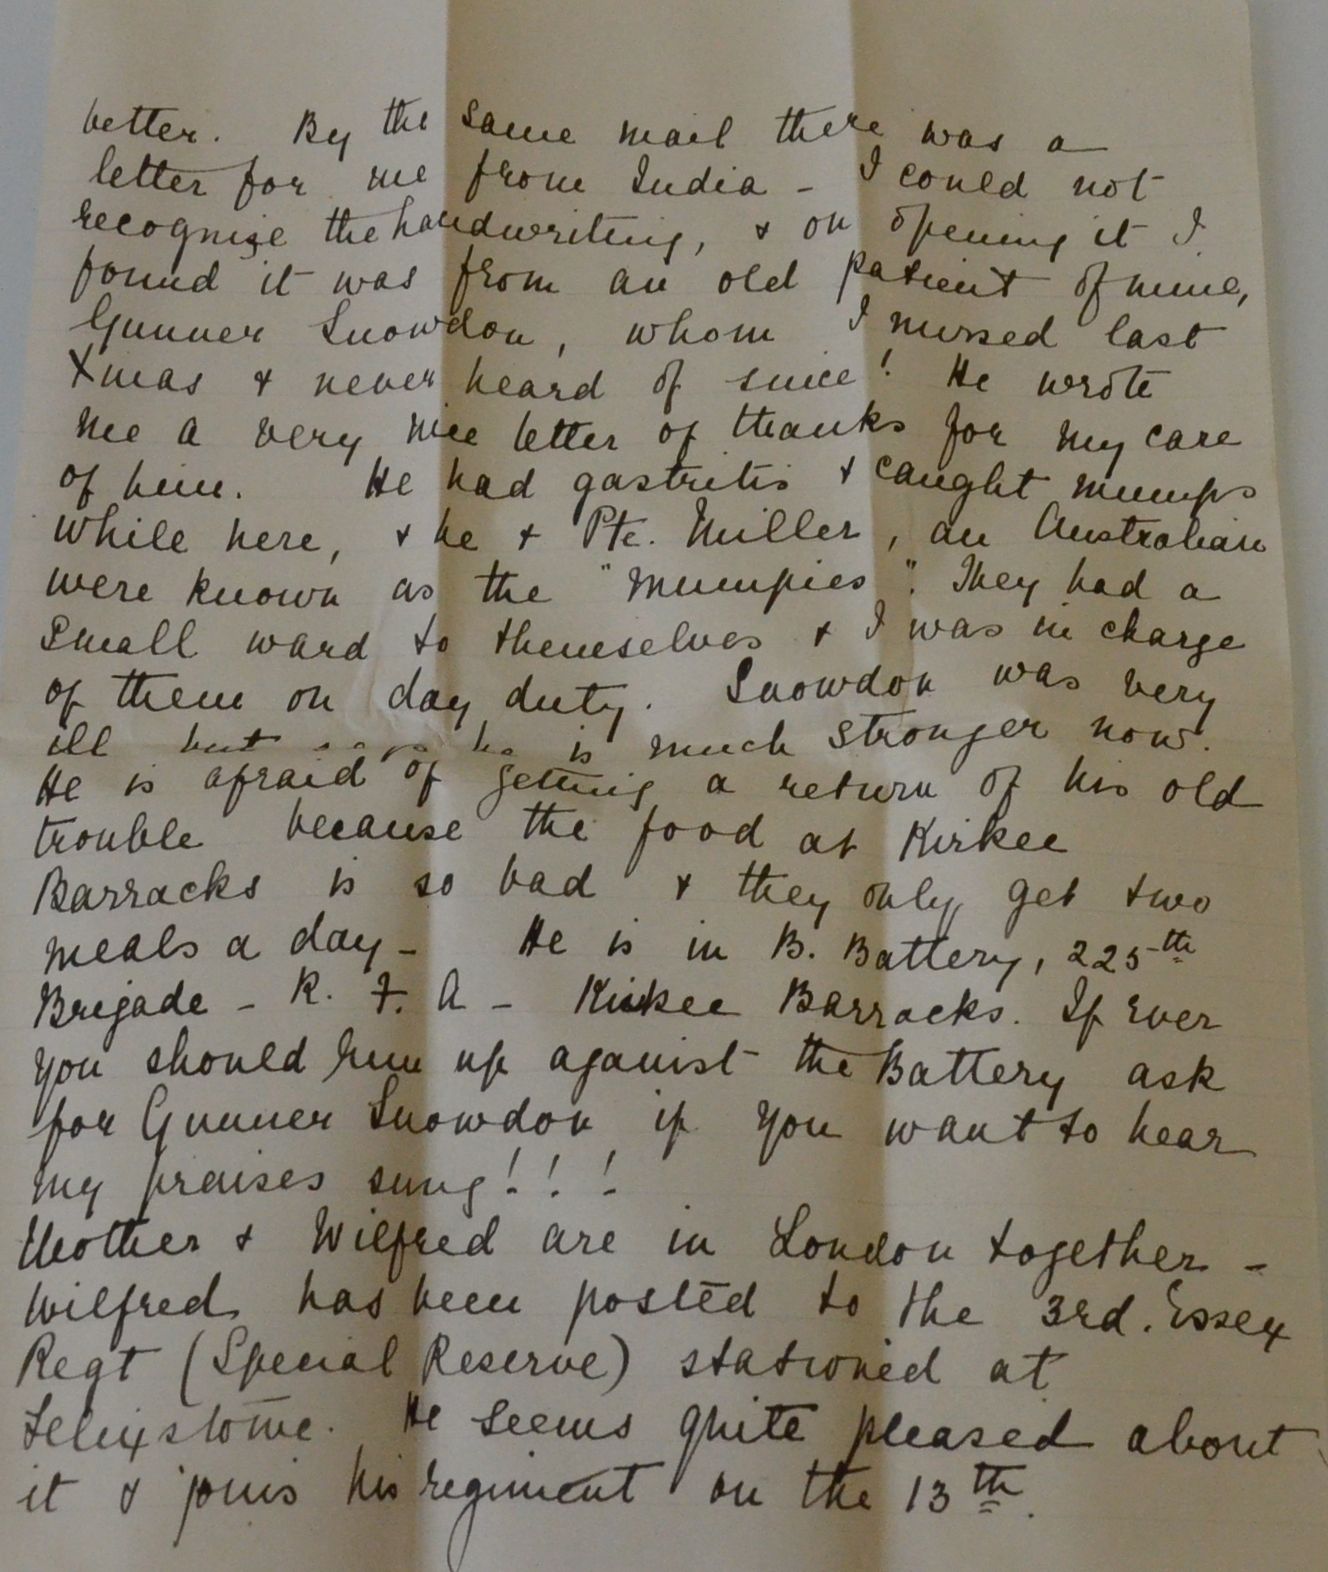 better. By the same mail there was a
letter for me from India - I could not
recognize the handwriting, & on opening it I
found it was from an old patient of mine,
Gunner Snowdon, whom I nursed last
Xmas & never heard of since! He wrote
me a very nice letter of thanks for my care
of him. He had gastritis & caught mumps
while here, & he & Pte. Miller, an Australian
were known as the "Mumpies". They had a
small ward to themselves & I was in charge
of them on day duty. Snowdon was very
ill but says he is much stronger now.
He is afraid of getting a return of his old
trouble because the food at Kirkee
Barracks is so bad & they only get two
meals a day - He is in B. Battery, 225th
Brigade - R. F. A - Kirkee Barracks. If ever
you should run up against the Battery ask
for Gunner Snowdon if you want to hear
my praises sung! ! !
Mother & Wilfred are in London together -
Wilfred has been posted to the 3rd. Essex
Regt (Special Reserve) stationed at
Felixstowe. He seems quite pleased about
it & joins his regiment on the 13th.